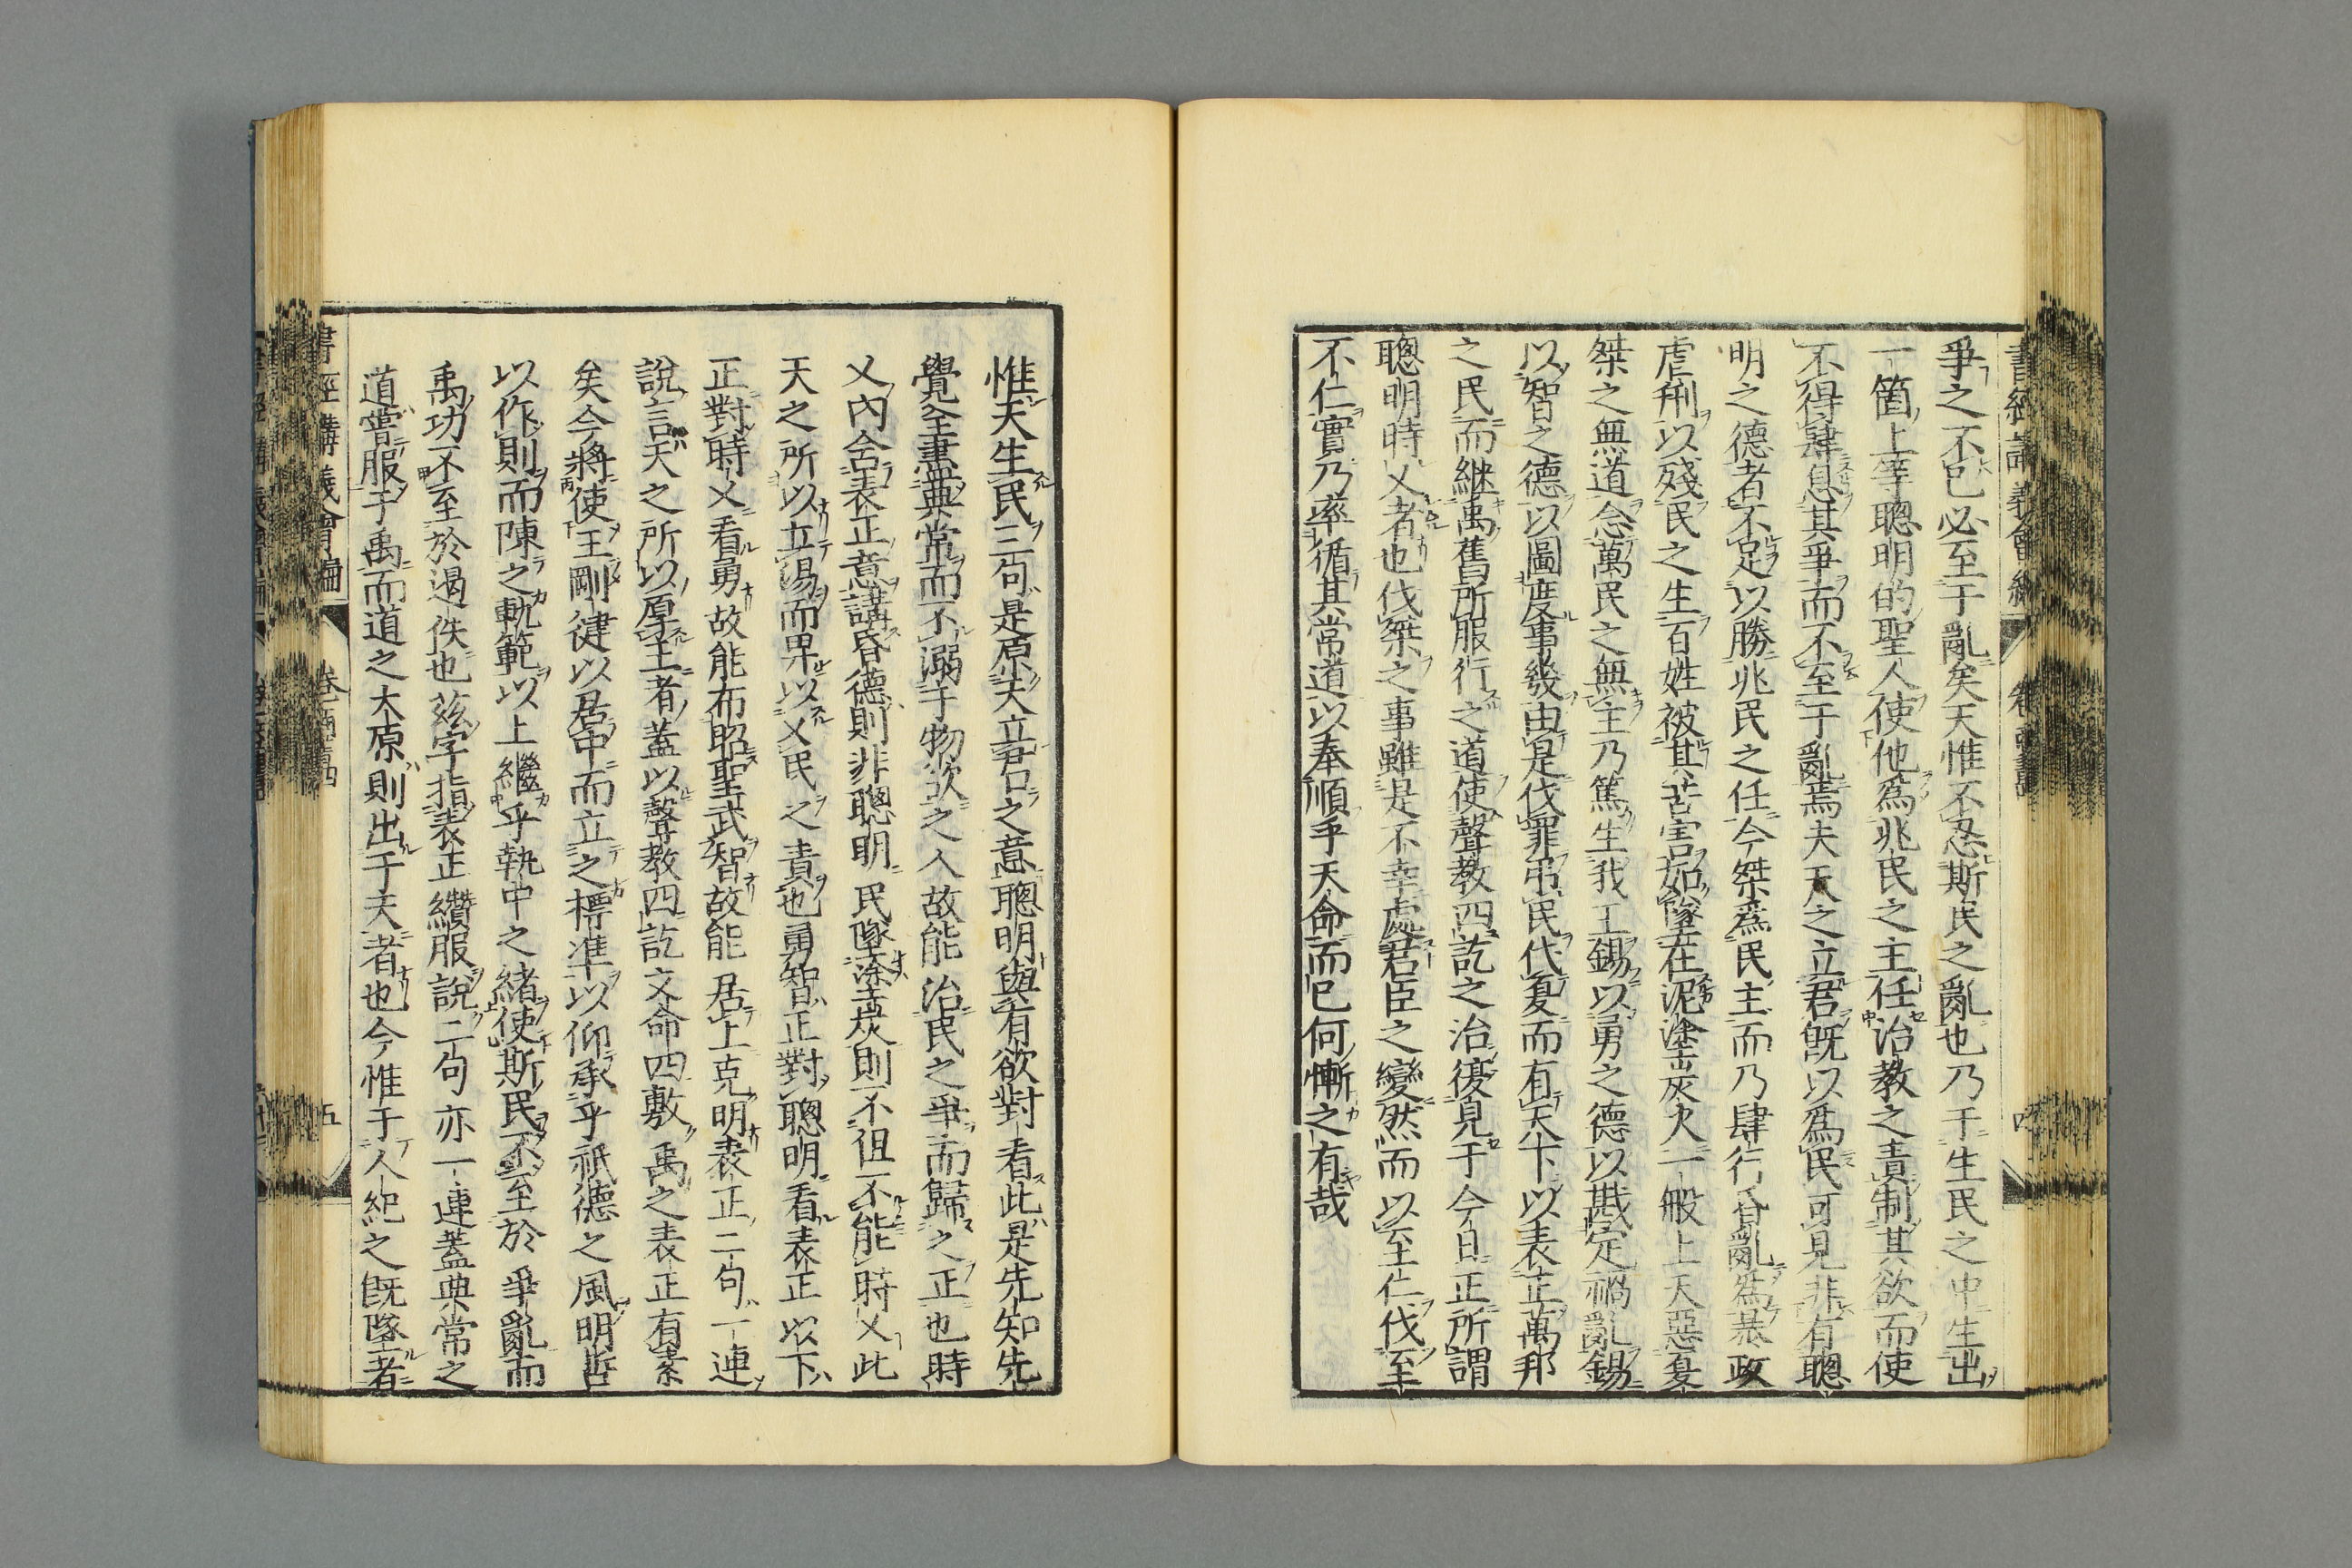 爭之不已必至于亂矣天惟不忍斯民之亂也乃于生民之中生出
一箇上等聰明的聖人使他爲兆民之主任治教之責制其欲而使
不得肆息其爭而不至于亂焉夫天之立君既以爲民可見非有聰
明之德者不足以勝兆民之任今桀爲民主而乃肆行昏亂爲暴政
虐刑以殘民之生百姓被其苦害如墜在泥塗炭火一般上天惡夏
桀之無道念萬民之無主乃篤生我王錫以勇之德以戡定禍亂錫
以智之德以圖度事幾由是伐罪弔民代夏而有天下以表正萬邦
之民而継禹舊所服行之道使聲教四訖之治復見于今日正所謂
聰明時乂者也伐桀之事雖是不幸處君臣之變然而以至仁伐至
不仁實乃率循其常道以奉順乎天命而已何慚之有哉
惟天生民三句是原天立君之意聰明與有欲對看此是先知先
覺全盡典常而不溺于物欲之人故能治民之爭而歸之正也時
乂內含表正意講昏德則非聰明民墜塗炭則不但不能時乂此
天之所以立湯而畀以乂民之責也勇智正對聰明看表正以下
正對時乂看勇故能布昭聖武智故能居上克明表正二句一連
說言天之所以厚王者蓋以聲教四訖文命四敷禹之表正有素
矣今將使王剛健以居中而立之標準以仰承乎祇德之風明哲
以作則而陳之軌範以上繼乎執中之緒使斯民不至於爭亂而
禹功不至於遏佚也茲字指表正纘服說二句亦一連蓋典常之
道嘗服于禹而道之大原則出于天者也今惟于人紀之既墜者
書經講義會編
卷
五